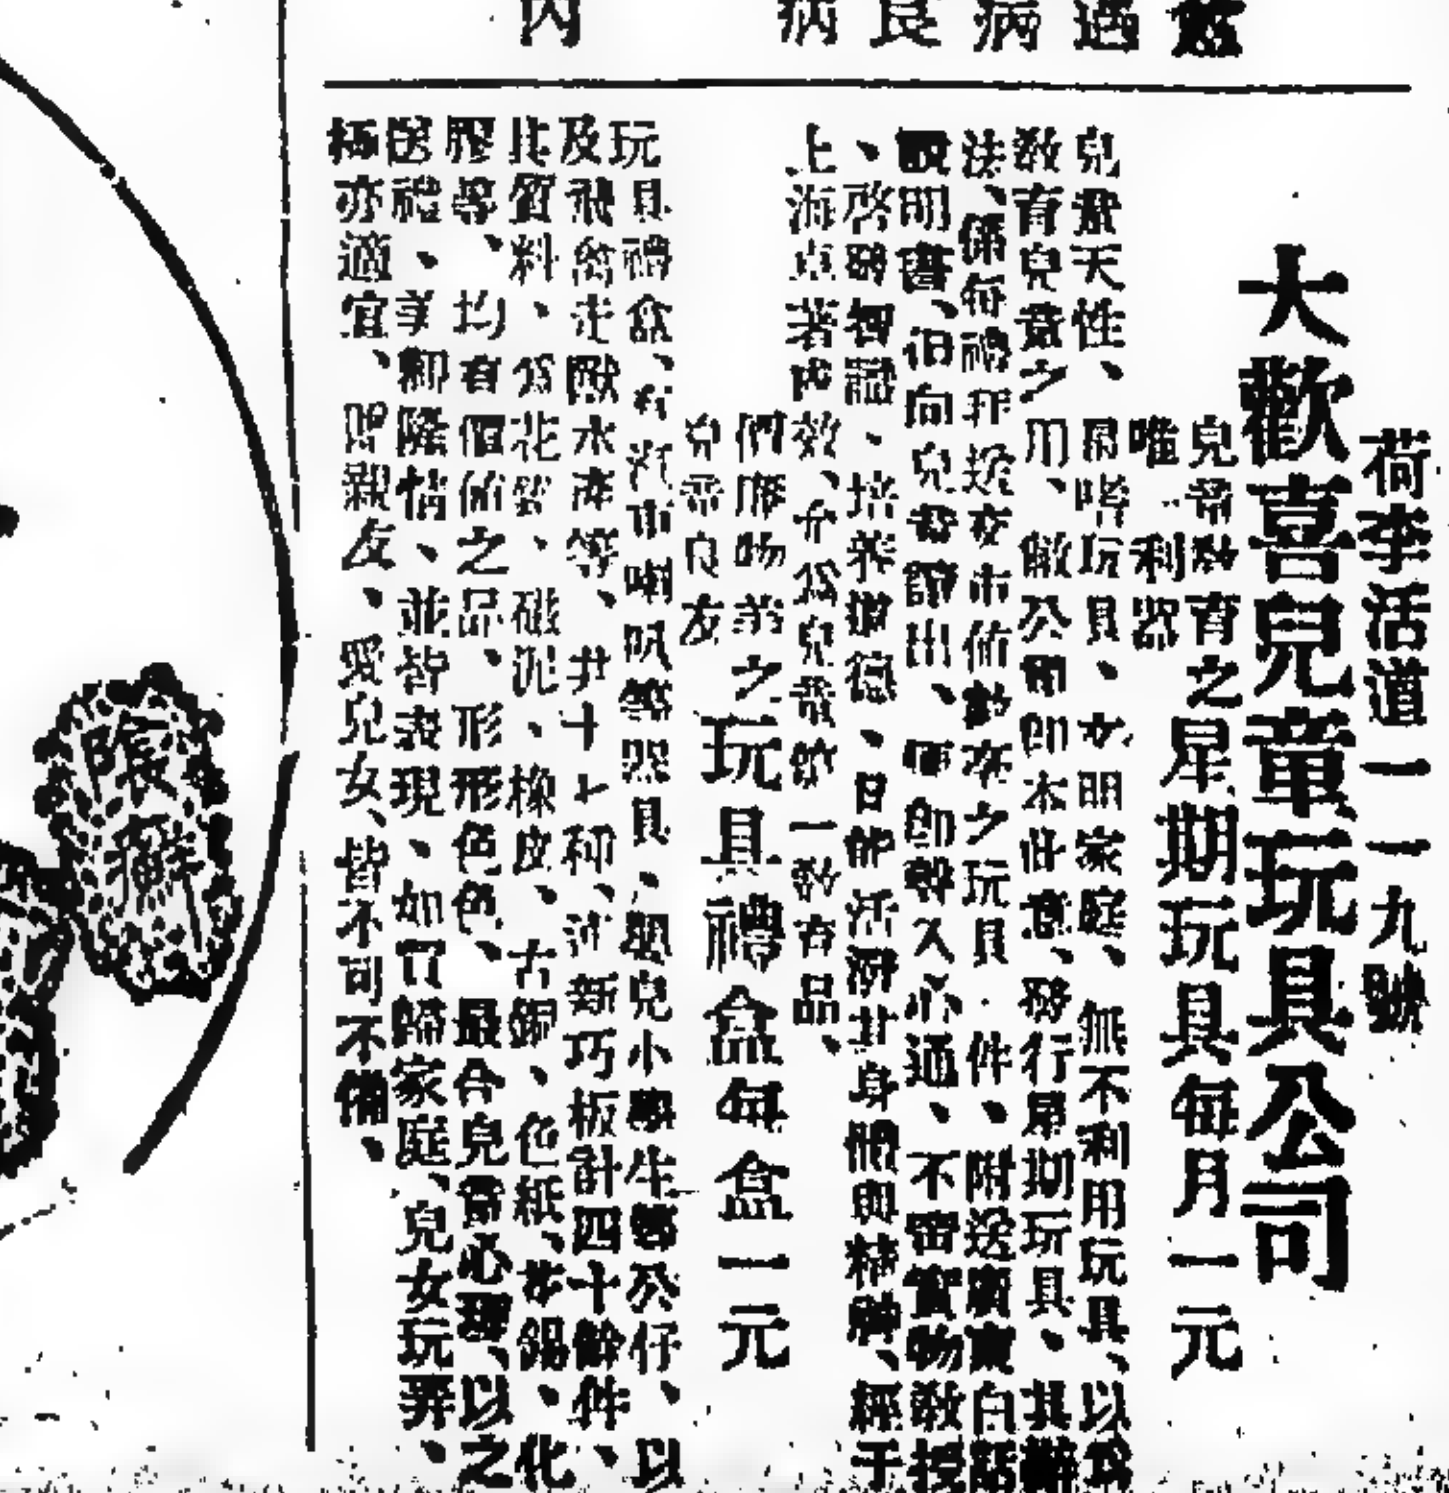 病良病
內
荷李活道一一九號
大歡喜兒童玩具公司
兒童教育之
唯一利器
星期玩具每月一元
兒童天性、喜嗜玩具、文明家庭、無不利用玩具、以爲
教育兒童之用、敝公司即本此意、發行星期玩具、其辦
法、係每禮拜送交市價數毫之玩具一件、附送廣東白話
說明書、沿向兒童讀出、便即聲入心通、不啻實物敎授
、啓發智識、培養道德、日能活潑其身體與精神、經于
上海卓著成效、允爲兒童第一敎育品、
們席物弟之
兒童良友
玩具禮盒每盒一元
玩具禮盒、有汽車喇叭等器具、嬰兒小學生等公仔、以
及飛禽走獸水產等、共十七種、淸新巧板計四十餘件、
其質料、爲花瓷、磁泥、橡皮、古銅、色紙、光錫、化
膠等、均有價値之品、形形色色、最合兒童心理、以之
送禮、美御隆情、並皆表現、如買歸家庭、兒女玩弄、
極亦適宜、即親友、愛兒女、皆不可不備、
癬